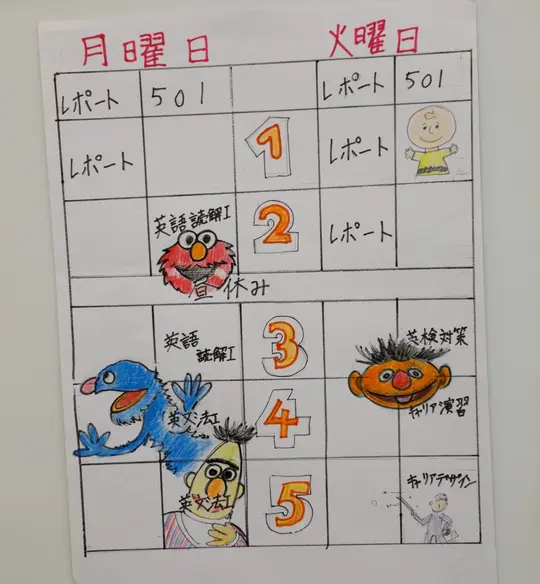 月曜日 火曜日
レポート 501 レポート 501
レポート 1 レポート
英語読解I 2 レポート
昼休み
英語 3 英検対策
読解I
英文法I 4 キャリア演習
英文法I 5 キャリアデザイン